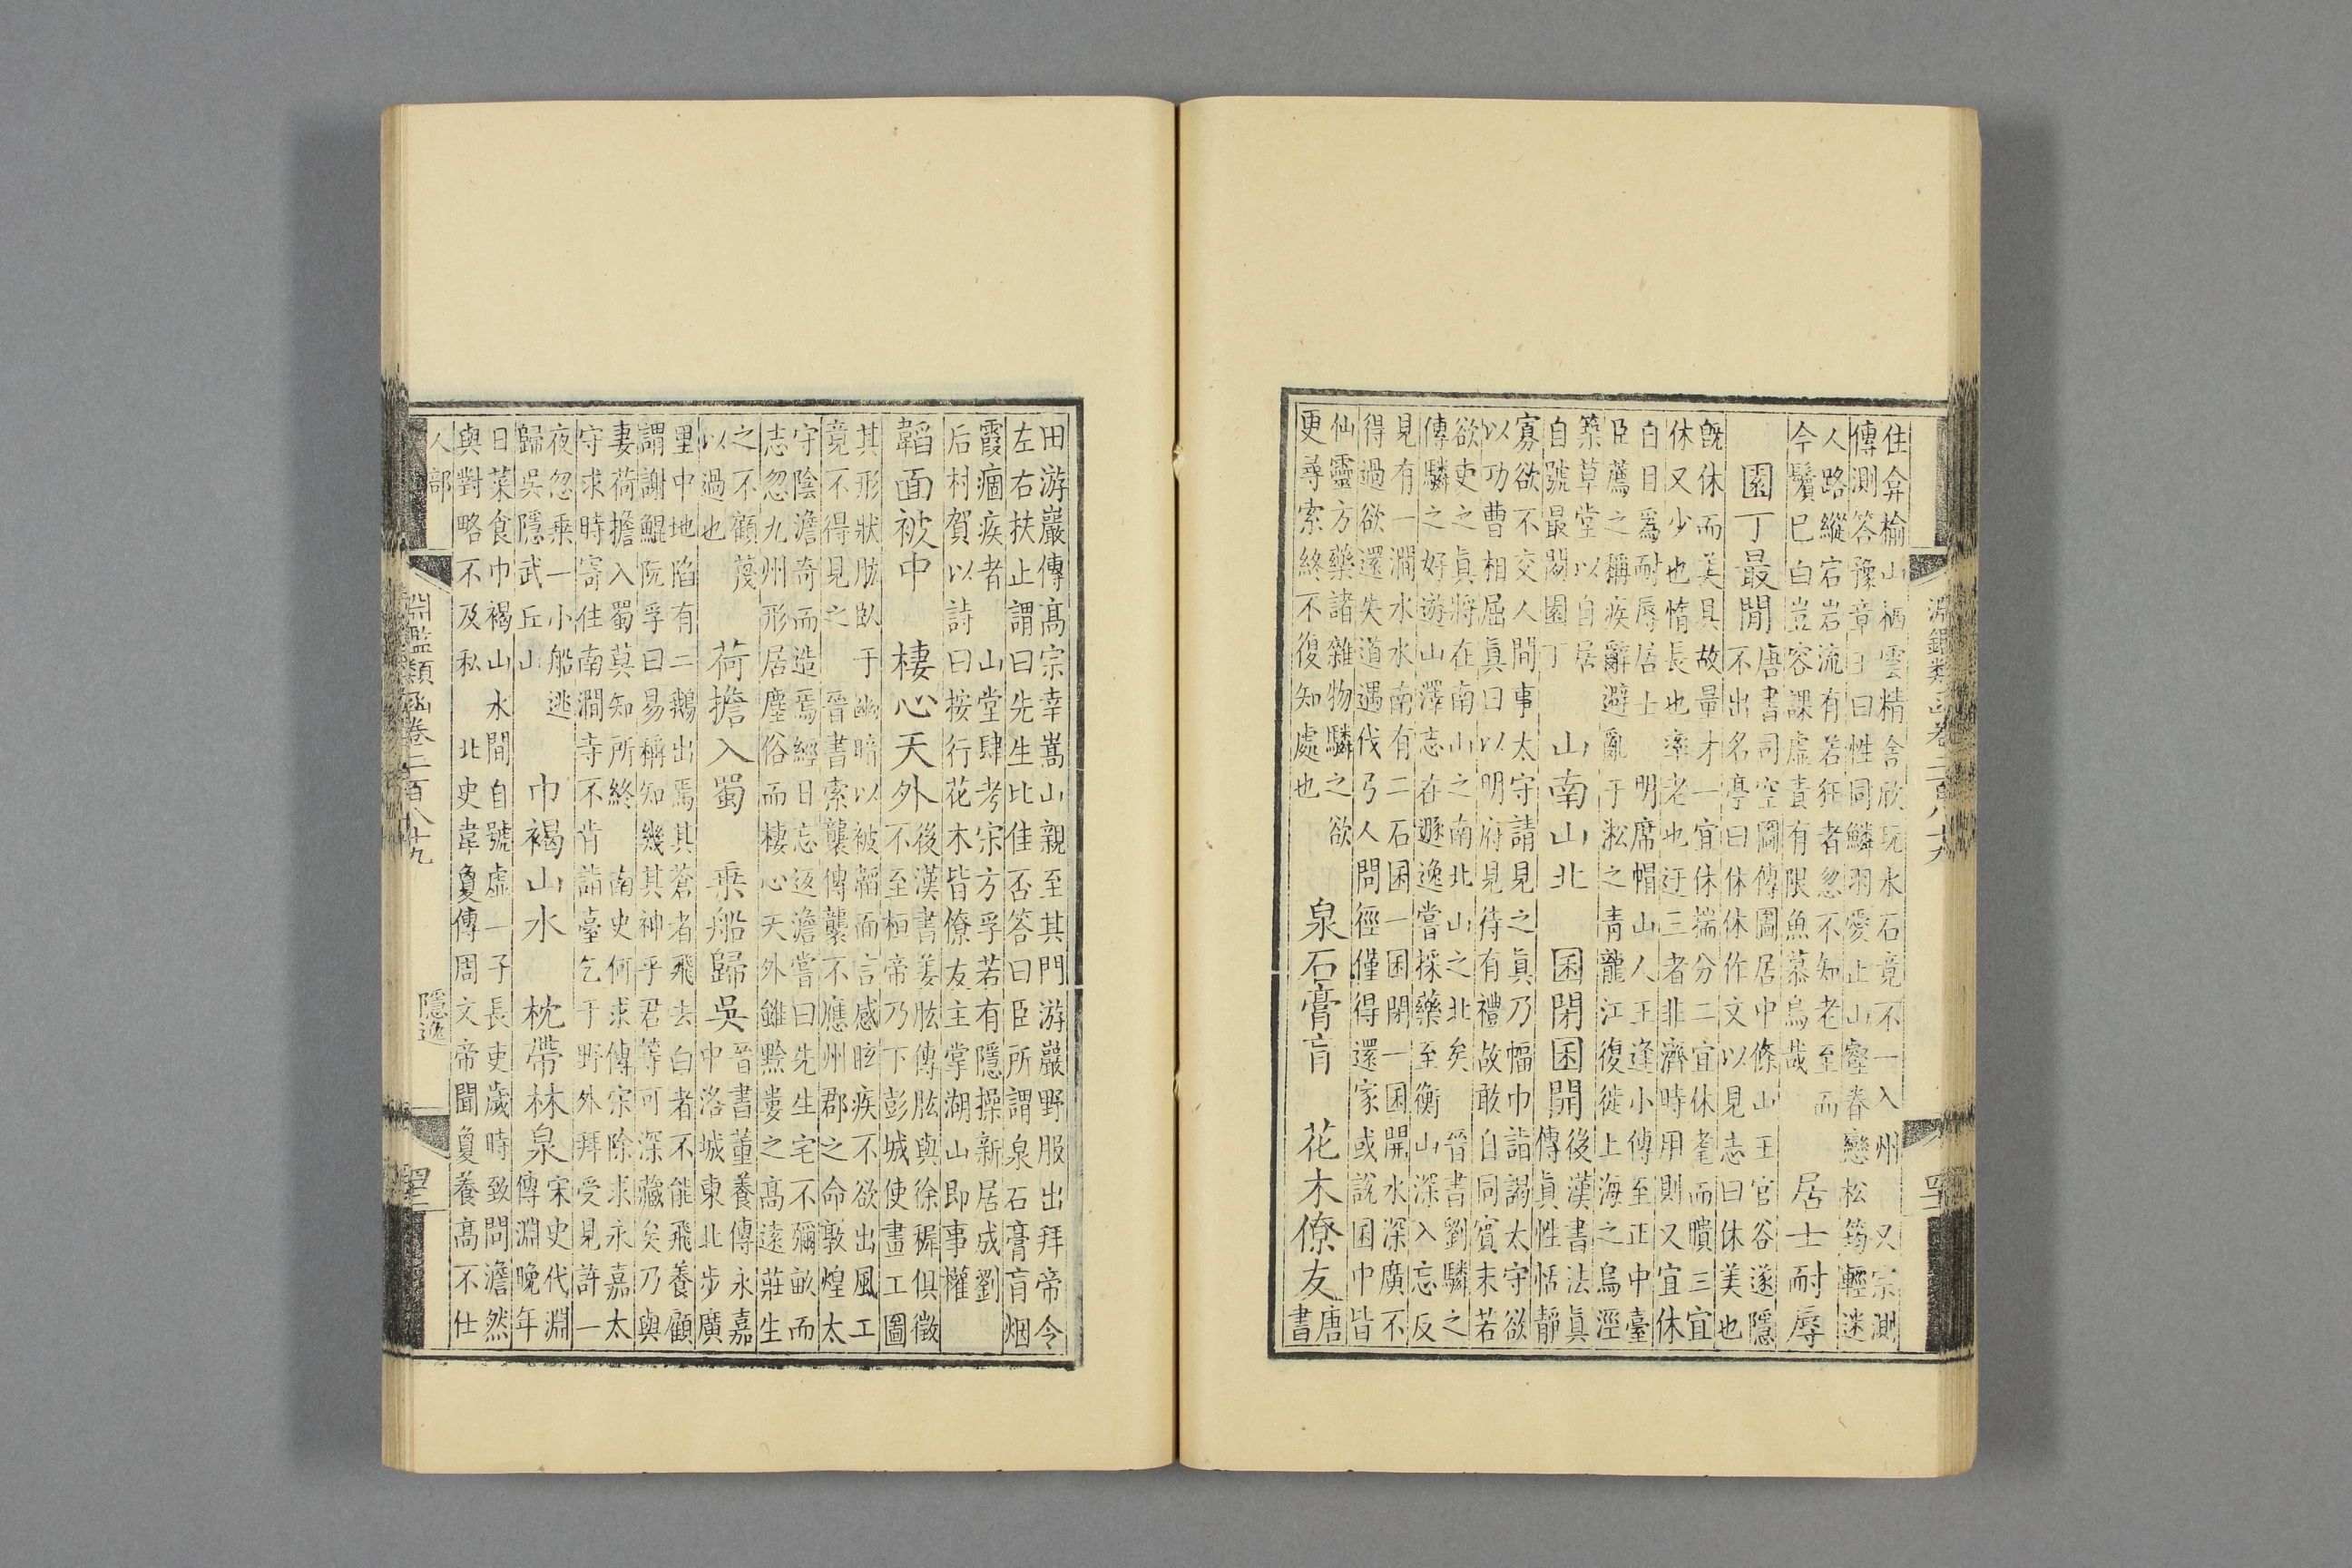 住弇榆山栖雲精舍欣玩水石竟不一入州 又宗測
傳測答豫章王曰性同鱗羽愛止山壑眷戀松筠輕迷
人路縱宕岩流有若狂者忽不知老至而
今鬢巳白豈容課虛責有限魚慕鳥哉
居士耐辱
園丁最閒
唐書司空圖傳圖居中條山王官谷遂隱
不出名亭曰休休作文以見志曰休美也
旣休而美具故量才一宜休揣分二宜休耄而聵三宜
休又少也惰長也率老也迂三者非濟時用則又宜休
白日爲耐辱居士 明席帽山人王逢小傳至正中臺
臣薦之稱疾辭避亂于淞之青龍江復徙上海之烏涇
築草堂以自居
自號最閒園丁
山南山北 囷閉囷開
後漢書法眞
傳眞性恬靜
寡欲不交人間事太守請見之眞乃幅巾詣謁太守欲
以功曹相屈眞曰以明府見待有禮故敢自同賓末若
欲吏之眞將在南山之南北山之北矣 晉書劉驎之
傳驎之好遊山澤志在遯逸嘗採藥至衡山深入忘反
見有一澗水水南有二石囷一囷閉一囷開水深廣不
得過欲還失道遇伐弓人問徑僅得還家或說囷中皆
仙靈方藥諸雜物驎之欲
更尋索終不復知處也
泉石膏肓 花木僚友
唐
書
田游巖傳高宗幸嵩山親至其門游巖野服出拜帝令
左右扶止謂曰先生比佳否答曰臣所謂泉石膏肓烟
霞痼疾者 山堂肆考宋方孚若有隱操新居成劉
后村賀以詩曰按行花木皆僚友主掌湖山即事權
韜面被中 棲心天外
後漢書姜肱傳肱與徐穉俱徵
不至桓帝乃下彭城使畫工圖
其形狀肱臥于幽暗以被韜面言感眩疾不欲出風工
竟不得見之 晉書索襲傳襲不應州郡之命敦煌太
守陰澹奇而造焉經日忘返澹嘗曰先生宅不彌畝而
志忽九州形居塵俗而棲心天外雖黔婁之高遠莊生
之不顧蔑
以過也
荷擔入蜀 乘船歸吳
晉書董養傳永嘉
中洛城東北步廣
里中地陷有二鵝出焉其蒼者飛去白者不能飛養顧
謂謝鯤阮孚曰易稱知幾其神乎君等可深藏矣乃與
妻荷擔入蜀莫知所終 南史何求傳宋除求永嘉太
守求時寄住南澗寺不肯詣臺乞于野外拜受見許一
夜忽乘一小船逃
歸吳隱武丘山
巾褐山水 枕帶林泉
宋史代淵
傳淵晚年
日菜食巾褐山水間自號虛一子長吏歲時致問澹然
與對略不及私 北史韋敻傳周文帝聞敻養高不仕
人部
淵鑑類函卷二百八十九
隱逸